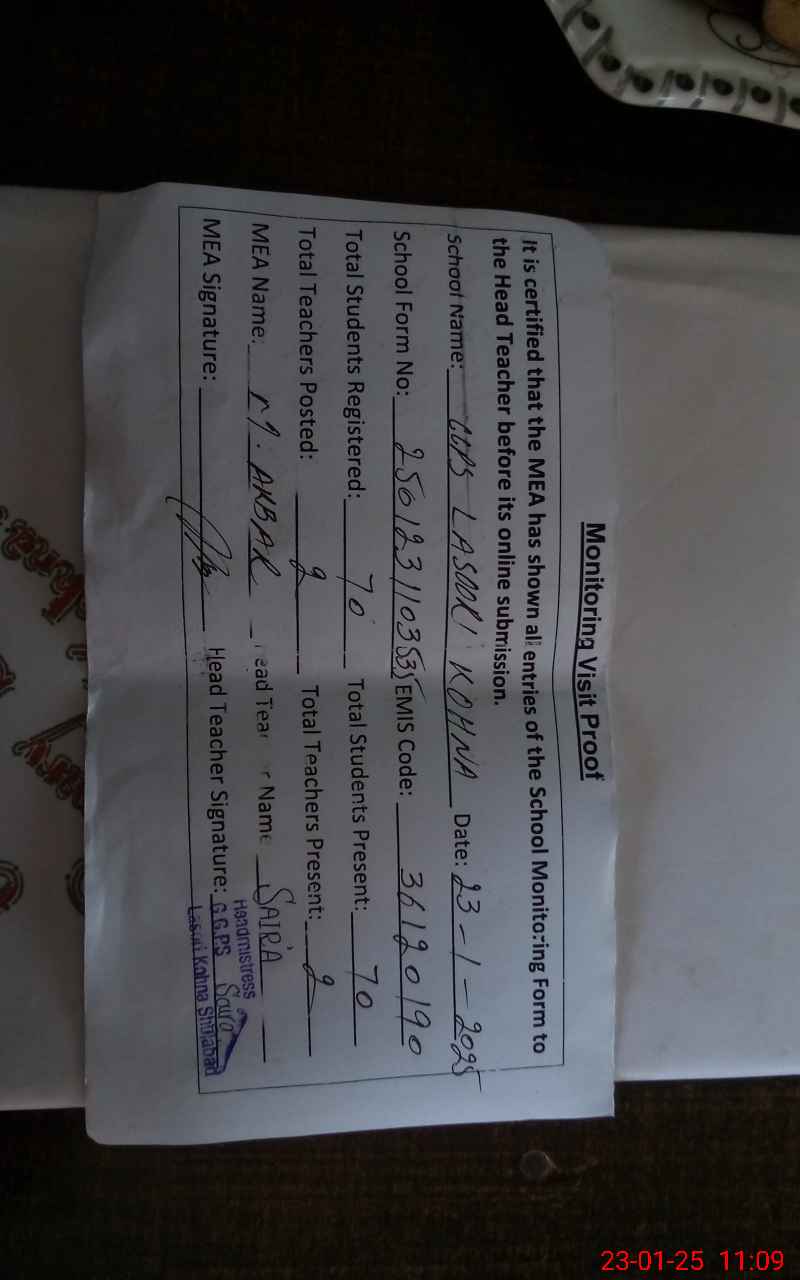 Monitoring Visit Proof
It is certified that the MEA has shown all entries of the School Monitoring Form to
the Head Teacher before its online submission.
School Name: GGPS LASOORI KOHNA Date: 23-1-2025
School Form No: 2501231103535 EMIS Code: 36120190
Total Students Registered: 70 Total Students Present: 70
Total Teachers Posted: 2 Total Teachers Present: 2
MEA Name: M. AKBAR Head Teacher Name SAIRA
MEA Signature: Head Teacher Signature: Saira
Headmistress
G.G.PS
Kohna
23-01-25 11:09